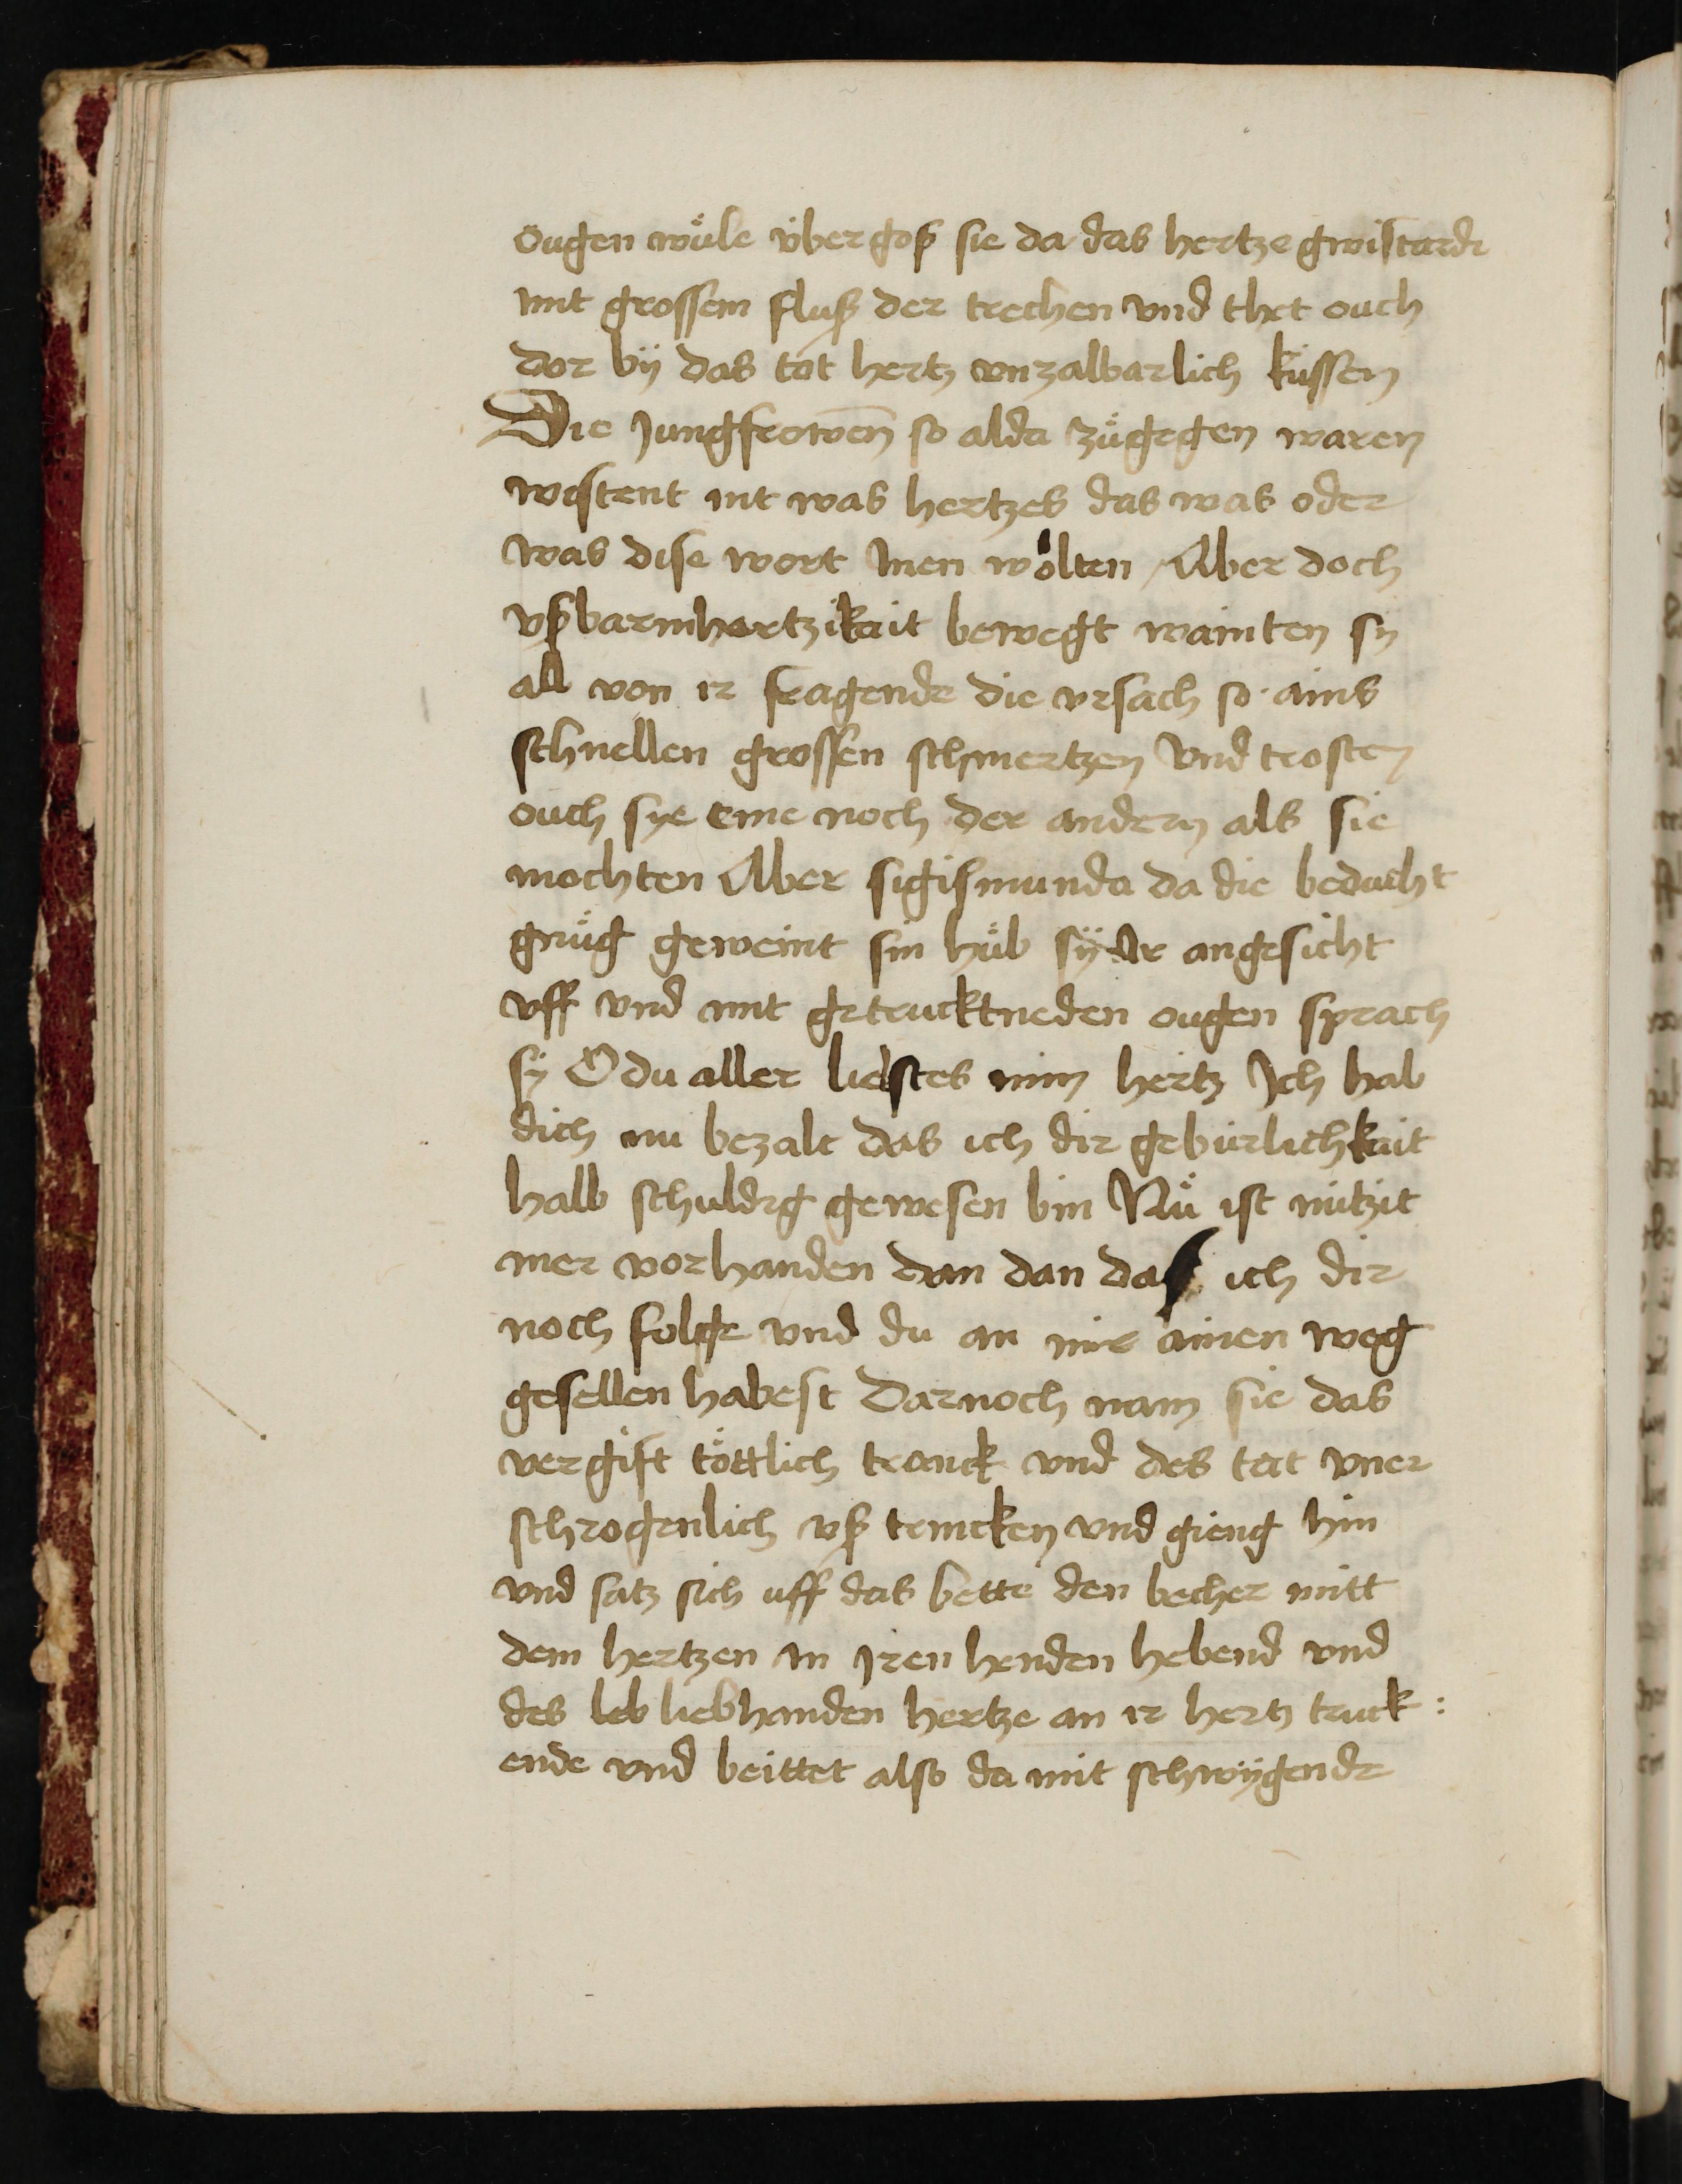 ougen wůle vbergoß sie da das hertze gwistardi
mit grossem fluß der trechen vnd thet ouch
dor bÿ das tot hertz vnzalbarlich küssen
Die Jungfrowen̄ so alda zůgegen waren
wistent nit was hertzes das was oder
was dise wort Inen wölten Aber doch
vßbarmhertzikait bewegt wainten sy
all von ir fragende die vrsach so ains
schnellen grossen schmertzen Vnd trosten
ouch sye eine noch der andern als sie
mochten Aber sigismunda da die beducht
gnůg geweint sin hůb sÿ Ir angesicht
vff vnd mit getruckneden ougen sprach
sÿ O du aller liebstes min hertz Ich hab
dich nu bezalt das ich dir gebürlichkait
halb schuldig gewesen bin Nů ist nützit
mer vorhanden dan dan das ich dir
noch folge vnd du an mir ainen weg
gesellen habest Darnoch nam sie das
vergift töttlich tranck vnd des tet vner
schrogenlich vß trincken vnd gieng hin
vnd satz sich uff das bette den becher mitt
dem hertzen in Iren henden hebend vnd
des leb liebhanden hertze an ir hertz truck:
ende vnd beittet also da mit schwÿgende